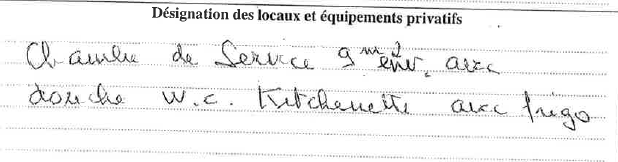 Désignation des locaux et équipements privatifs
Chambre de Service 9 m2 env, avec
douche W.C. Kitchenette avec frigo